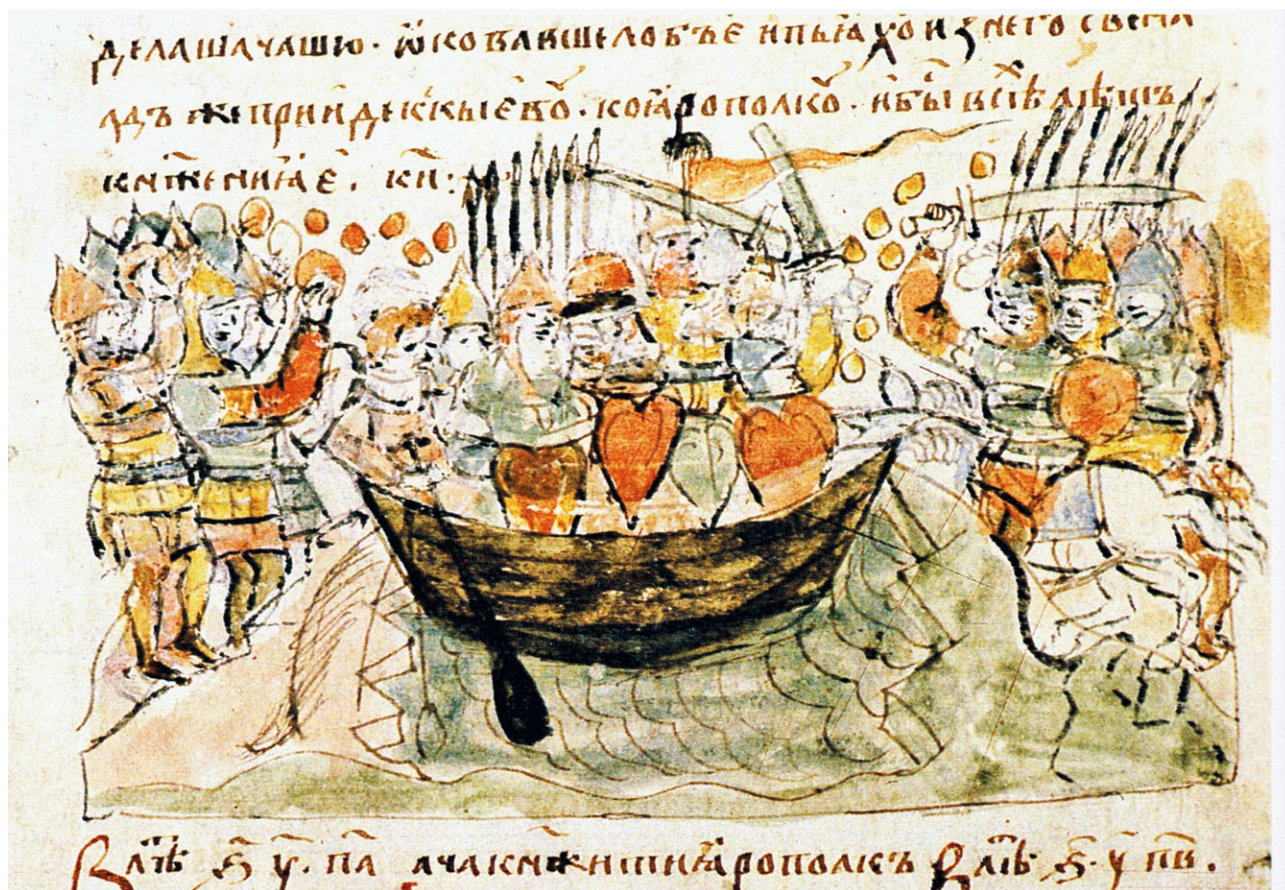 делаша чашю · ѡковавше лобъ е҃ и пьꙗхо из него свенал
дъ же прииде к кыевꙋ · ко ꙗрополкꙋ · и бы всѣ лѣтъ
кнѧжениꙗ е҃ · к҃и :
В лѣⷮ ҂ѕ҃ у҃ · п҃а ача кнѧжити ꙗрополкъ В лѣⷮ ҂ѕ҃ · у҃ п҃в ·